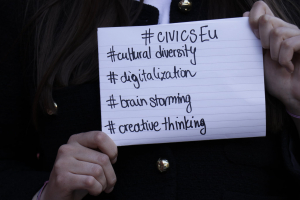 #CIVICSEu
#cultural diversity
#digitalization
#brain storming
#creative thinking